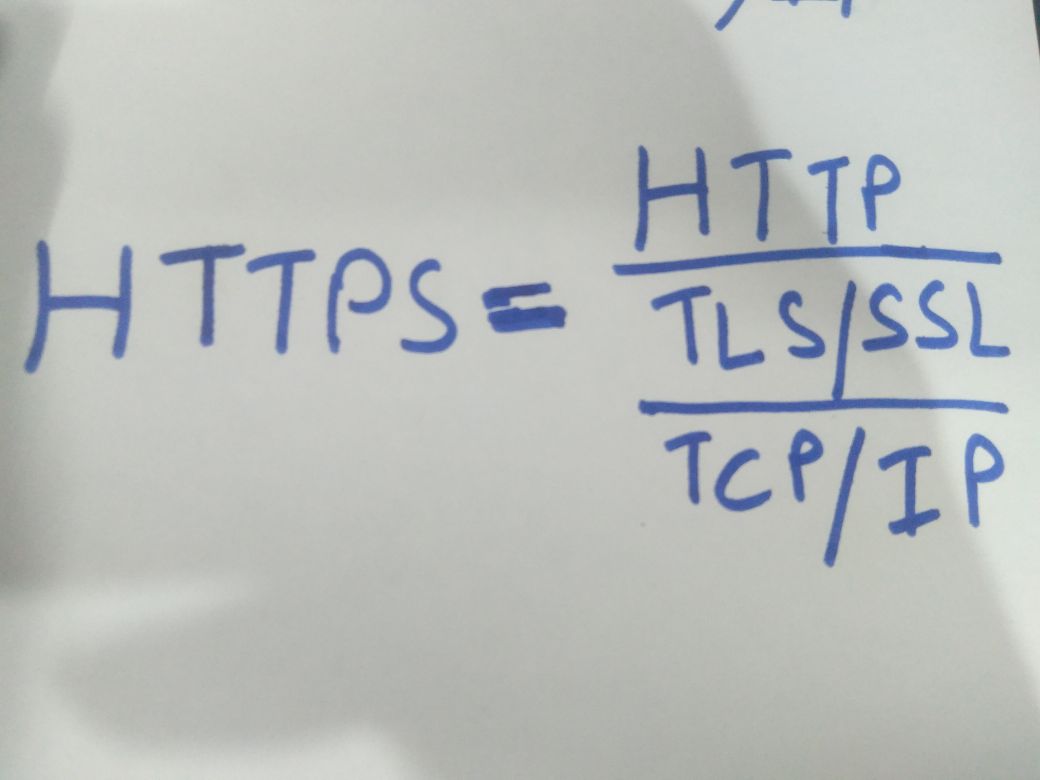 HTTP
HTTPS =
TLS/SSL
TCP/IP